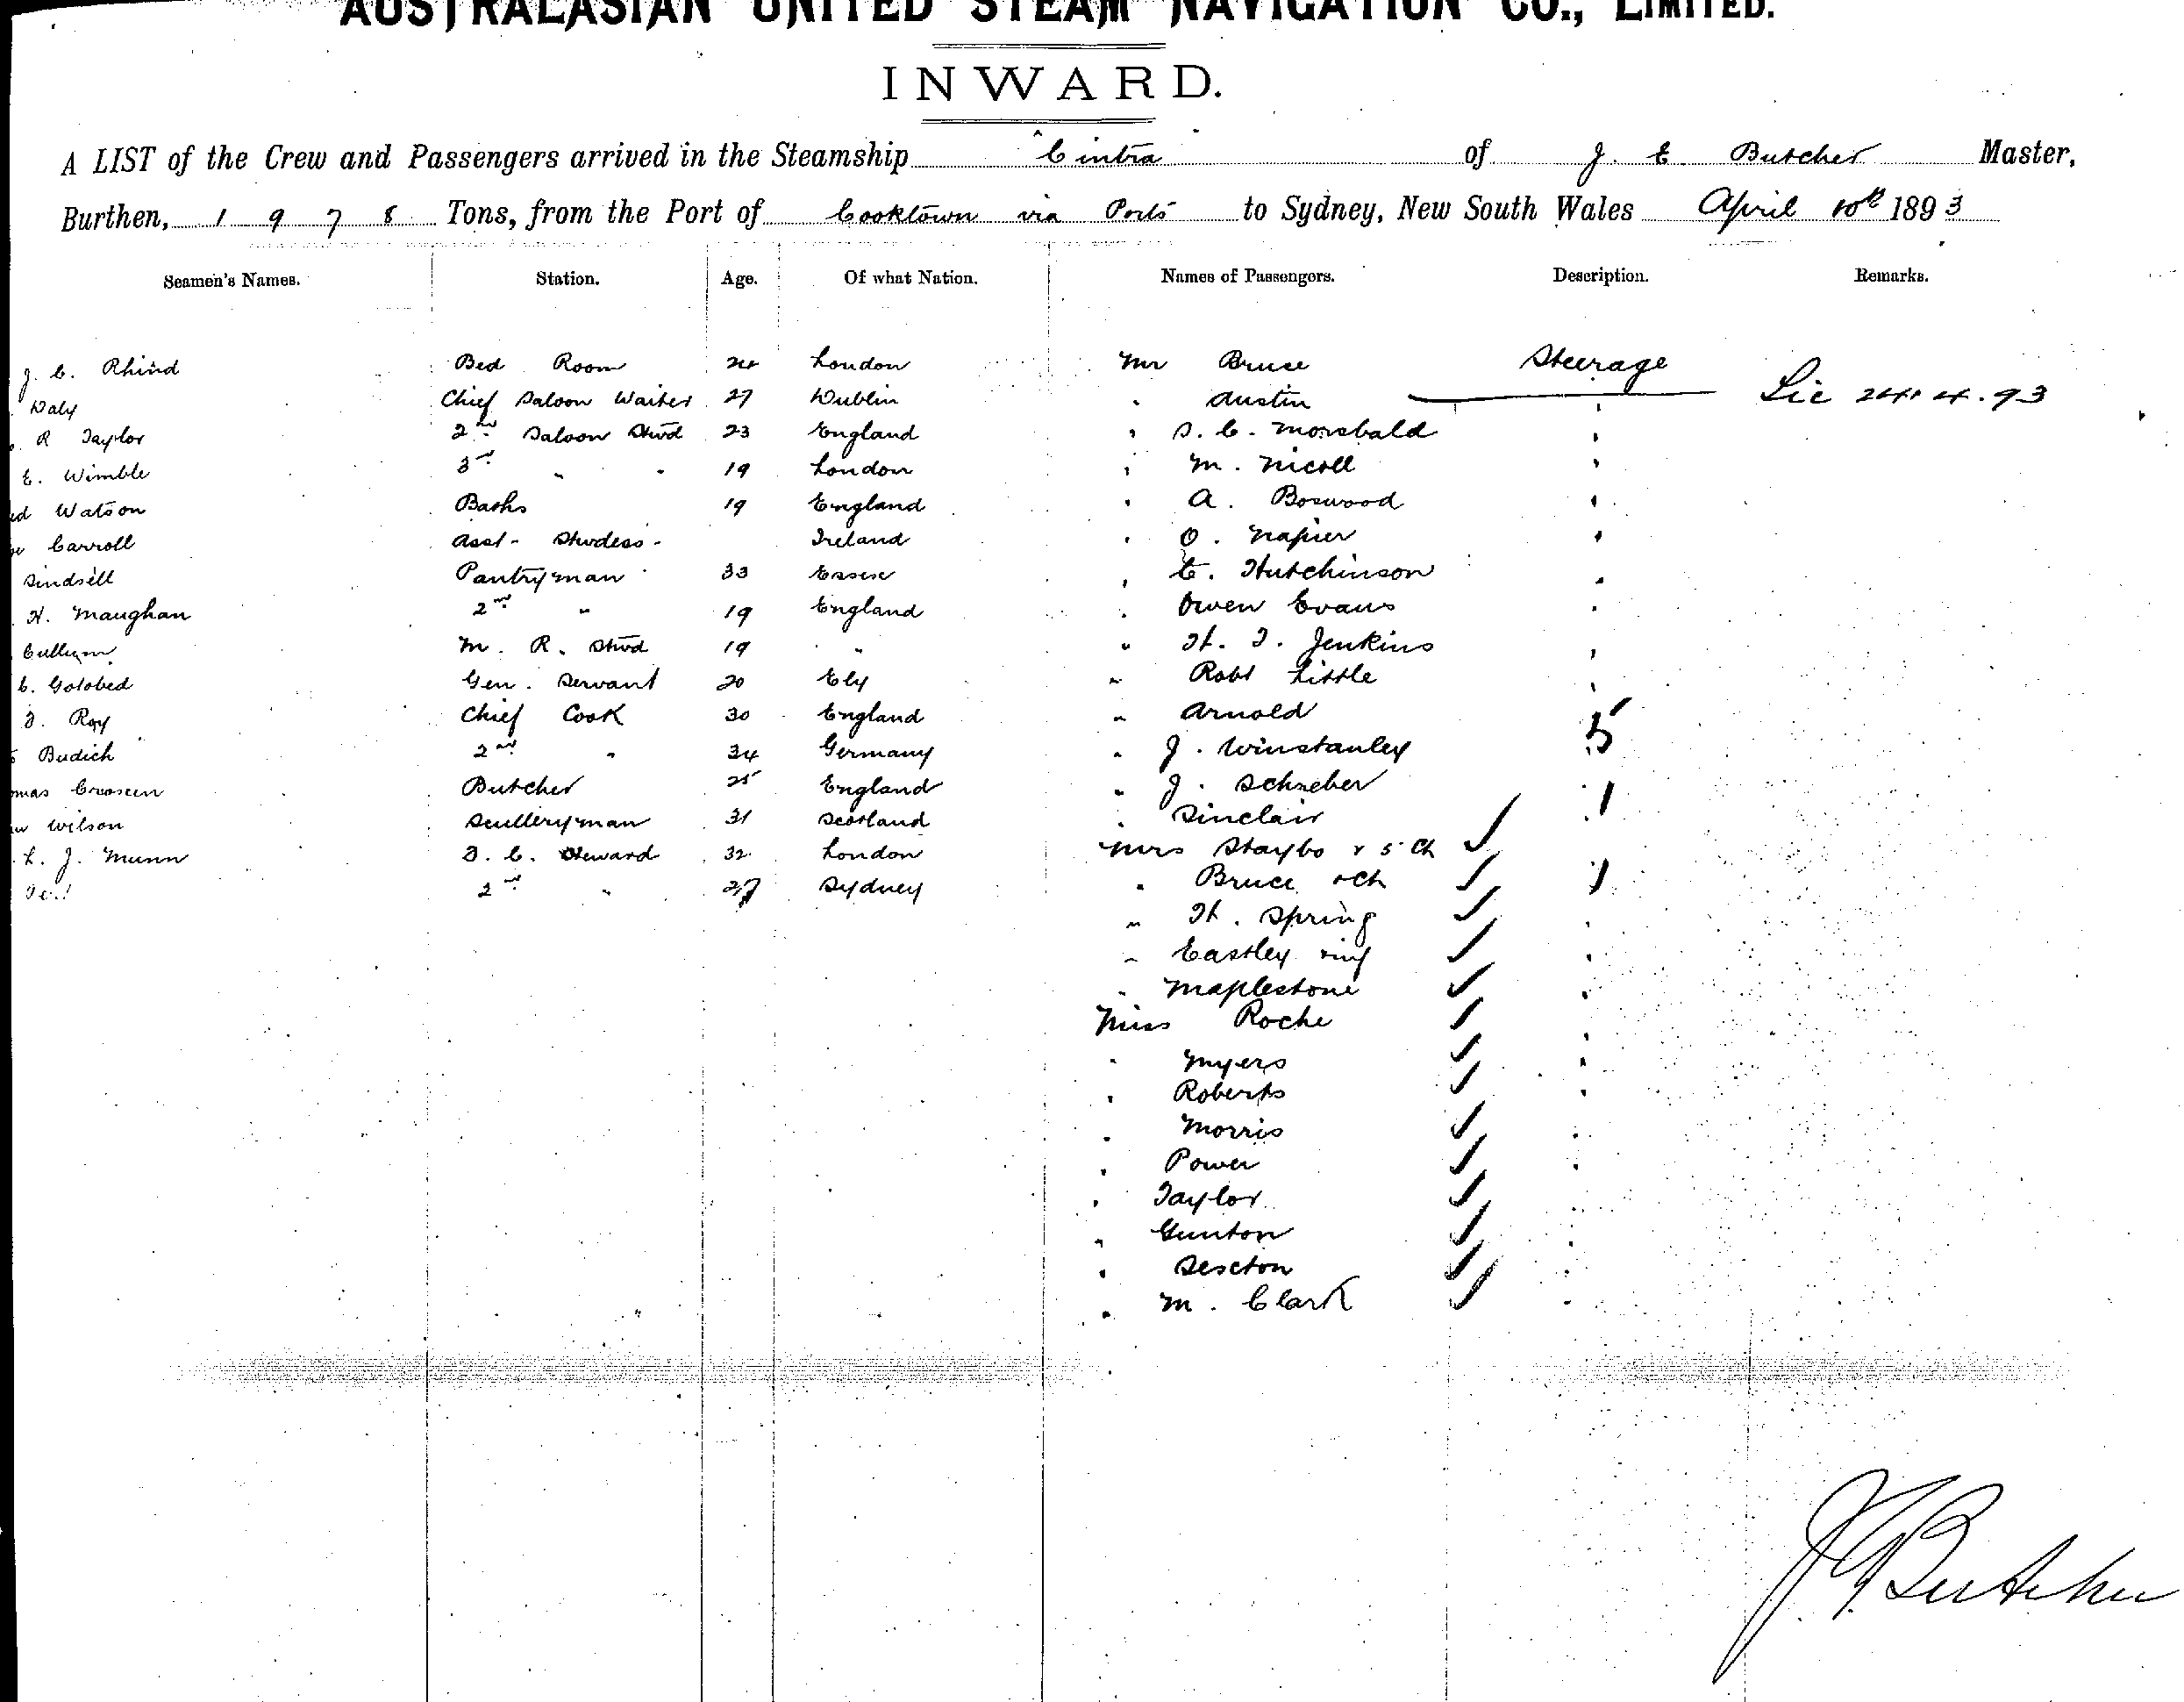 AUSTRALASIAN UNITED STEAM NAVIGATION CO., LIMITED.
INWARD.
A LIST of the Crew and Passengers arrived in the Steamship Cintra of J. E. Butcher Master,
Burthen, 1978 Tons, from the Port of Cooktown via Ports to Sydney, New South Wales April 10th 1893
Seamen's Names. Station. Age. Of what Nation. Names of Passengers. Description. Remarks.
J. C. Rhind Bed Room 24 London Mr Bruce Steerage
Daly Chief Saloon Waiter 27 Dublin " Austin Lic 24.4.93
R Taylor 2nd Saloon Stwd 23 England " S. C.
E. Wimble 3rd " " 19 London " M. Nicoll
Watson Baths 19 England " A. Boswood
Carroll Asst- Stwdess- Ireland " O. Napier
Sindsell Pantryman 33 Essex " E. Hutchinson
H. Maughan 2nd " 19 England " Owen Evans
Cullum M. R. Stwd 19 " " H. T. Jenkins
C. Golobed Gen. Servant 20 Ely " Robt Little
Roy Chief Cook 30 England " Arnold
Budich 2nd " 34 Germany " J. Winstanley 5
Butcher 25 England " J. Schreber
Wilson Sculleryman 31 Scotland " Sinclair 1
L. J. Munn S. C. Steward 32 London Mrs Staybo & 5 Ch
2nd " 27 Sydney " Bruce & Ch 1
" H. Spring
" Eastley
" Maplestone
Miss Roche
" Myers
" Roberts
" Morris
" Power
" Taylor
" Gunton
" Sexton
" M. Clark
J. E. Butcher